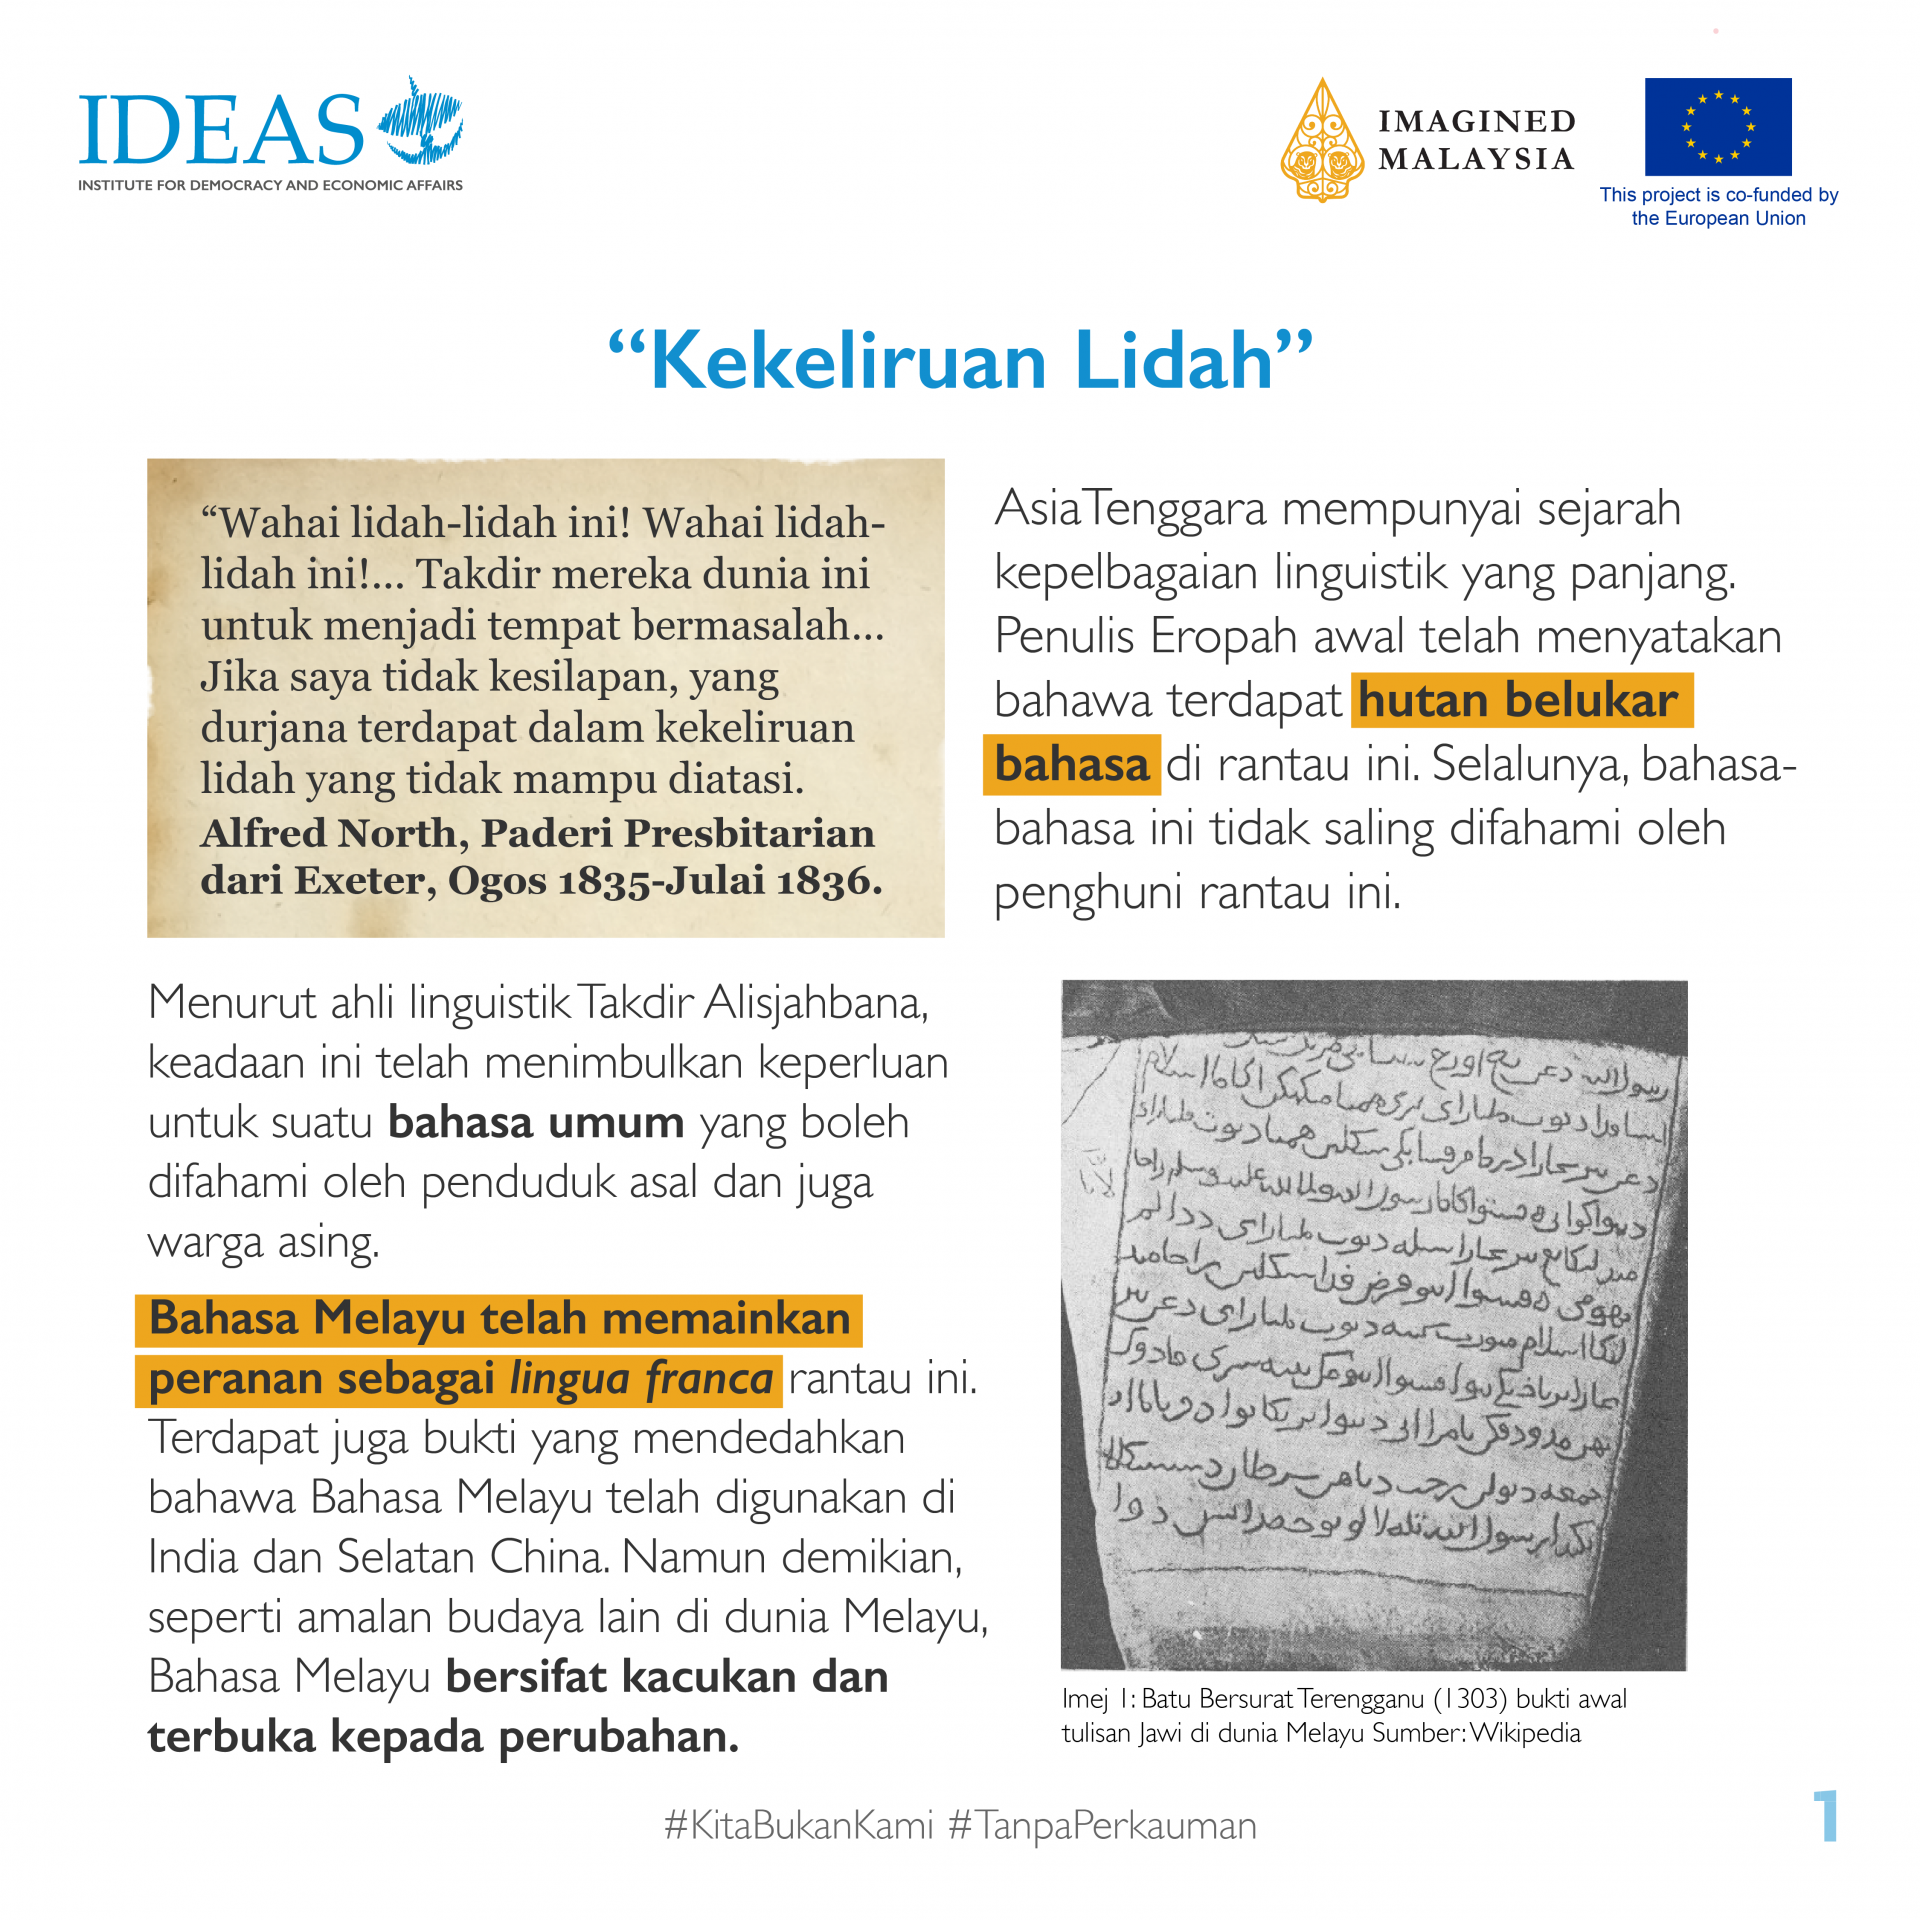 IDEAS
INSTITUTE FOR DEMOCRACY AND ECONOMIC AFFAIRS
IMAGINED
MALAYSIA
This project is co-funded by
the European Union
“Kekeliruan Lidah”
“Wahai lidah-lidah ini! Wahai lidah-
lidah ini!... Takdir mereka dunia ini
untuk menjadi tempat bermasalah...
Jika saya tidak kesilapan, yang
durjana terdapat dalam kekeliruan
lidah yang tidak mampu diatasi.
Alfred North, Paderi Presbitarian
dari Exeter, Ogos 1835-Julai 1836.
Asia Tenggara mempunyai sejarah
kepelbagaian linguistik yang panjang.
Penulis Eropah awal telah menyatakan
bahawa terdapat hutan belukar
bahasa di rantau ini. Selalunya, bahasa-
bahasa ini tidak saling difahami oleh
penghuni rantau ini.
Menurut ahli linguistik Takdir Alisjahbana,
keadaan ini telah menimbulkan keperluan
untuk suatu bahasa umum yang boleh
difahami oleh penduduk asal dan juga
warga asing.
Bahasa Melayu telah memainkan
peranan sebagai lingua franca rantau ini.
Terdapat juga bukti yang mendedahkan
bahawa Bahasa Melayu telah digunakan di
India dan Selatan China. Namun demikian,
seperti amalan budaya lain di dunia Melayu,
Bahasa Melayu bersifat kacukan dan
terbuka kepada perubahan.
Imej 1: Batu Bersurat Terengganu (1303) bukti awal
tulisan Jawi di dunia Melayu Sumber: Wikipedia
#KitaBukanKami #TanpaPerkauman
1